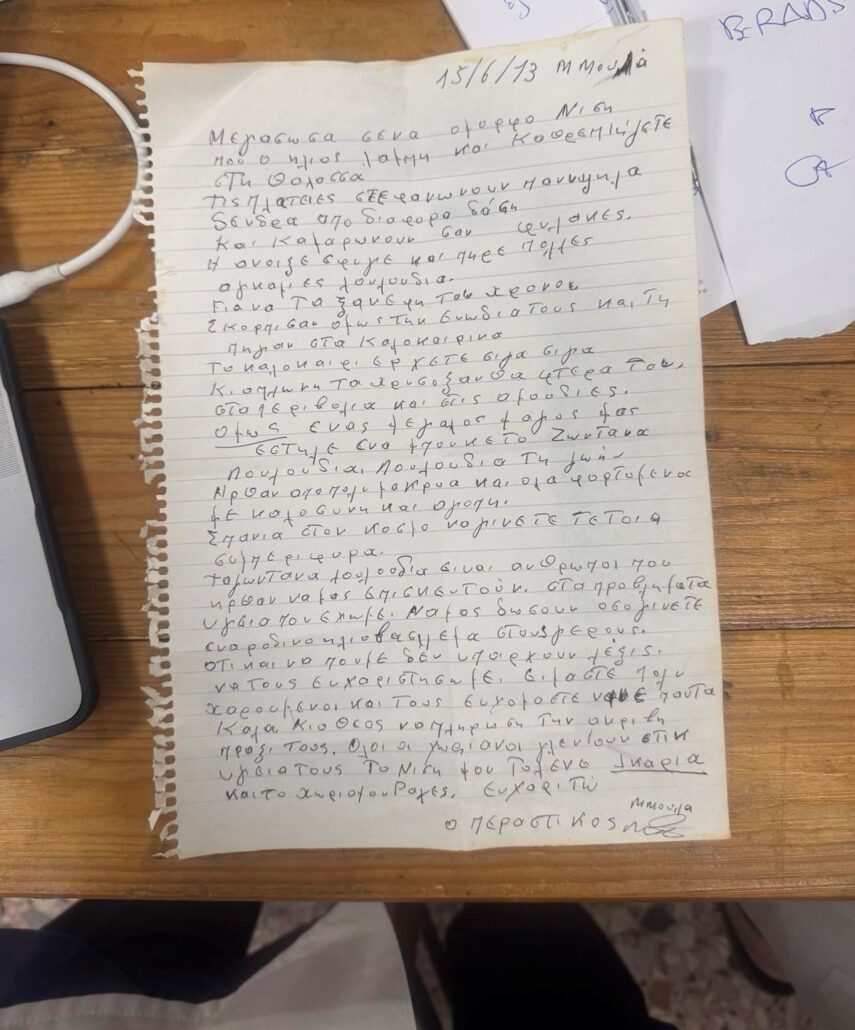 BERADS
15/6/13 ΜΜουλά
Μεγαοωσα σενα ομορφο Νιση
που ο ηλιος λαμπη και Καθρεπτηζετε
στη Θαλασσα
Τις πλατειες στεφανωνουν πανυψηλα
δενδρα απο διαφορα δάση
Και Καμαρωνουν σαν φυλακες.
Η ανοιξε εφυγε και πηρε πολλες
αγκαλιες λουλουδια.
Για να τα ξαναφερη του χρονου
Σκορπισαν ομως την Ευωδια τους και τη
πηραν στα Καλοκαιρινα
Το καλοκαιρι ερχετε σιγα σιγα
Κι απλωνη τα χρυσοξανθα φτερα του,
στα περιβολια και στις αμουδιες.
Ομως ενας μεγαλος φαρος μας
εστηλε ενα μπουκετο Ζωντανα
Λουλουδια, Λουλουδια τη ζωής
Ηρθαν απο πολυ μακρυα και ολα φορτομενα
με καλοσυνη και αγαπη.
Σπανια στον κοσμο να γινετε τετοια
συμπεριφορα.
τα ζωντανα λουλουδια ειναι ανθρωποι που
ηρθαν να μας επισκευτούν. στα προβληματα
υγεια που εχωμε. Να μας δωσουν οσο γινετε
ενα ροδινο ηλιοβασιλεμα στους γερους.
οτι και να πουμε δεν υπαρχουν λεξις.
να τους ευχαριστησωμε. Ειμαστε πολυ
χαρουμενοι και τους ευχομαστε παντα
Καλα Κι ο Θεος να πληρωση την ακριβη
πραξι τους. Ολοι οι χωριανοι γλεντουν στιν
υγεια τους Το Νιση μου το λενε Ικαρια
και το χωριο μου Ραχες. Ευχαριτώ
ΜΜουλα
ο περαστικος